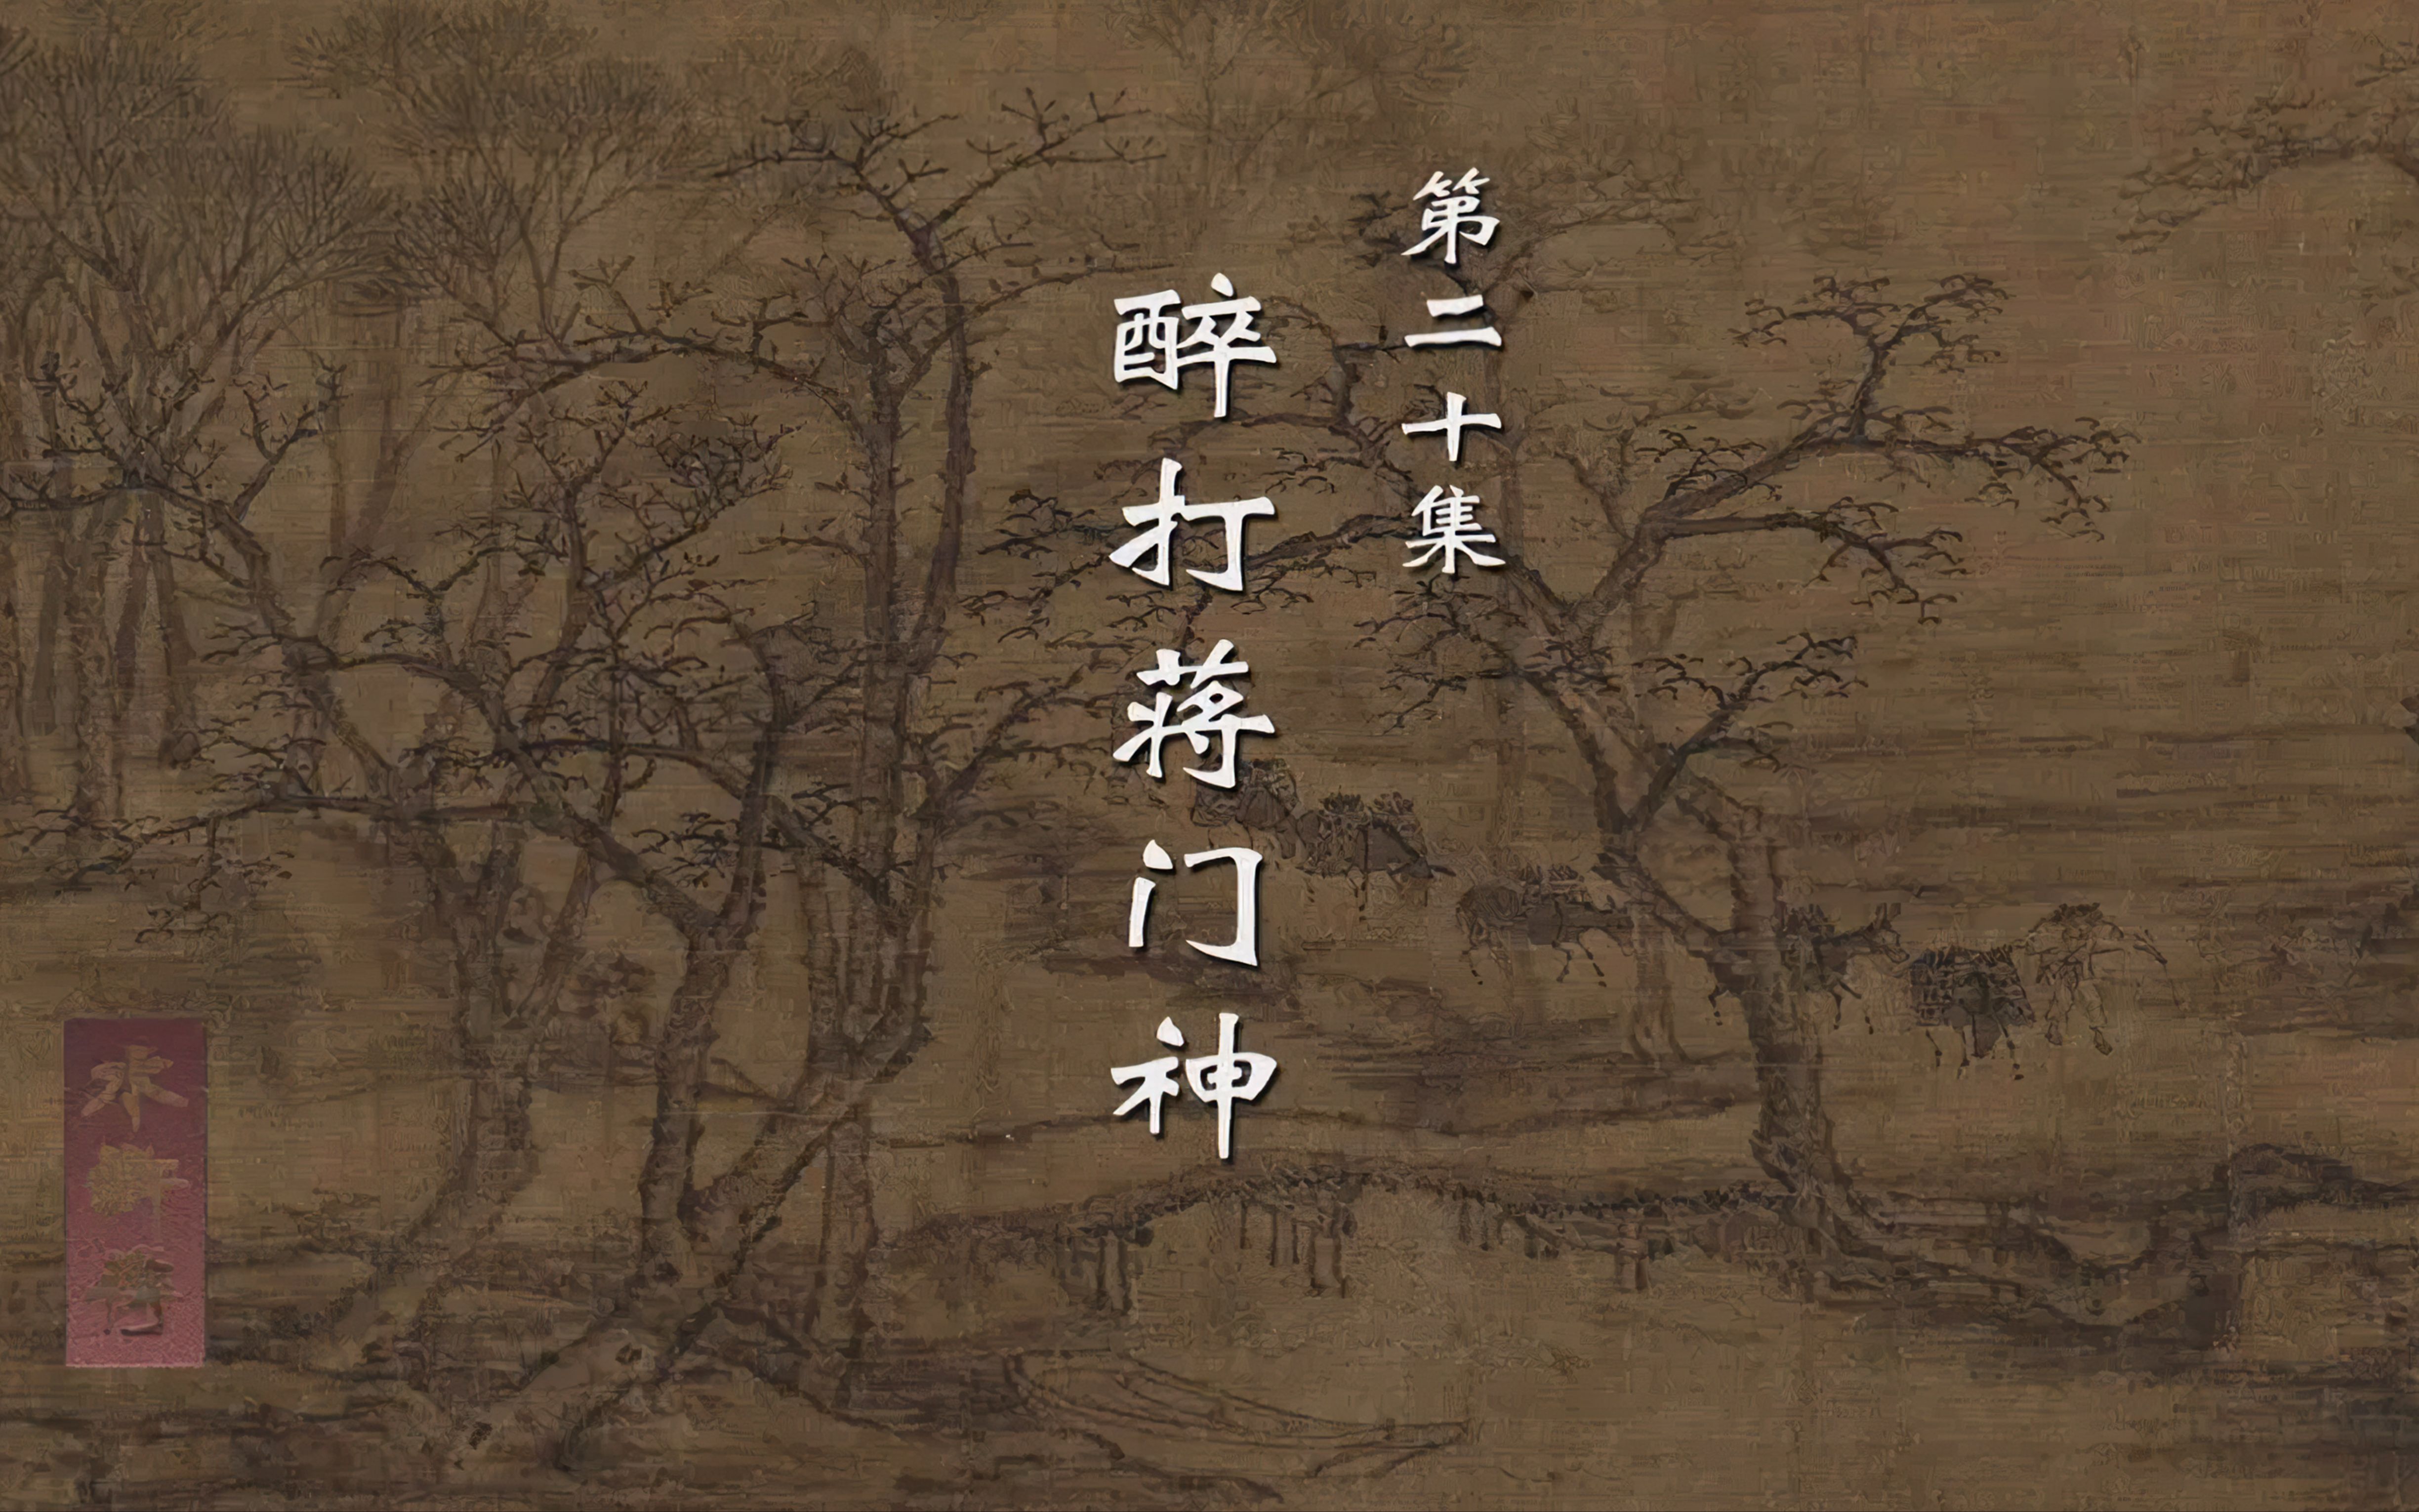 第二十集
醉打蒋门神
水浒传